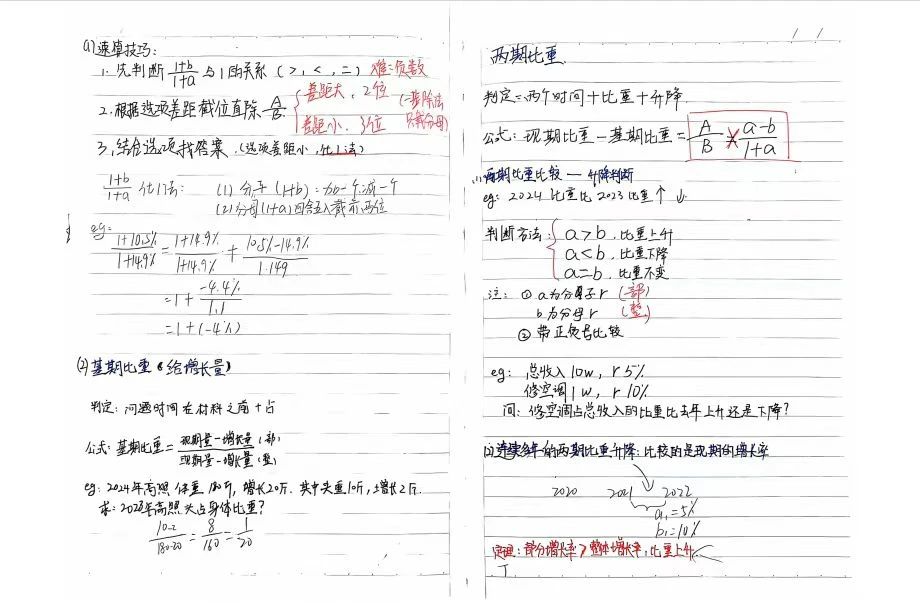 (1) 速算技巧：
1. 先判断 (1+b)/(1+a) 与 1 的关系 (>, <, =) 难：负数
2. 根据选项差距截位直除 A/B { 差距大, 2位 (一步除法
差距小, 3位 只截分母)
3. 结合选项找答案. (选项差距小, 化1法)
(1+b)/(1+a) 化1法: (1) 分子 (1+b): 加一个减一个
(2) 分母(1+a)四舍五入截前两位
eg:
(1+10.5%)/(1+14.9%) = (1+14.9%)/(1+14.9%) + (10.5%-14.9%)/1.149
= 1 + (-4.4%)/1.1
= 1+(-4%)
(2) 基期比重 (给增长量)
判定: 问题时间在材料之前+占
公式: 基期比重 = 现期量-增长量(部) / 现期量-增长量(整)
eg: 2024年高照体重180斤, 增长20斤. 其中头重10斤, 增长2斤.
求: 2023年高照头占身体比重?
(10-2)/(180-20) = 8/160 = 1/20
/ /
两期比重
判定=两个时间+比重+升降
公式: 现期比重-基期比重 = A/B × (a-b)/(1+a)
(1) 两期比重比较 — 升降判断
eg: 2024 比重比 2023比重↑ ↓
判断方法: { a>b, 比重上升
a<b, 比重下降
a=b, 比重不变
注: ① a为分子r (部)
b为分母r (整)
② 带正负号比较
eg: 总收入10w, r 5%
修空调1w, r 10%
问: 修空调占总收入的比重比去年上升还是下降?
(2) 连续多年的两期比重升降: 比较的是现期的增长率
2020 2021 2022
a₁=5%
b₁=10%
部分增长率>整体增长率, 比重上升